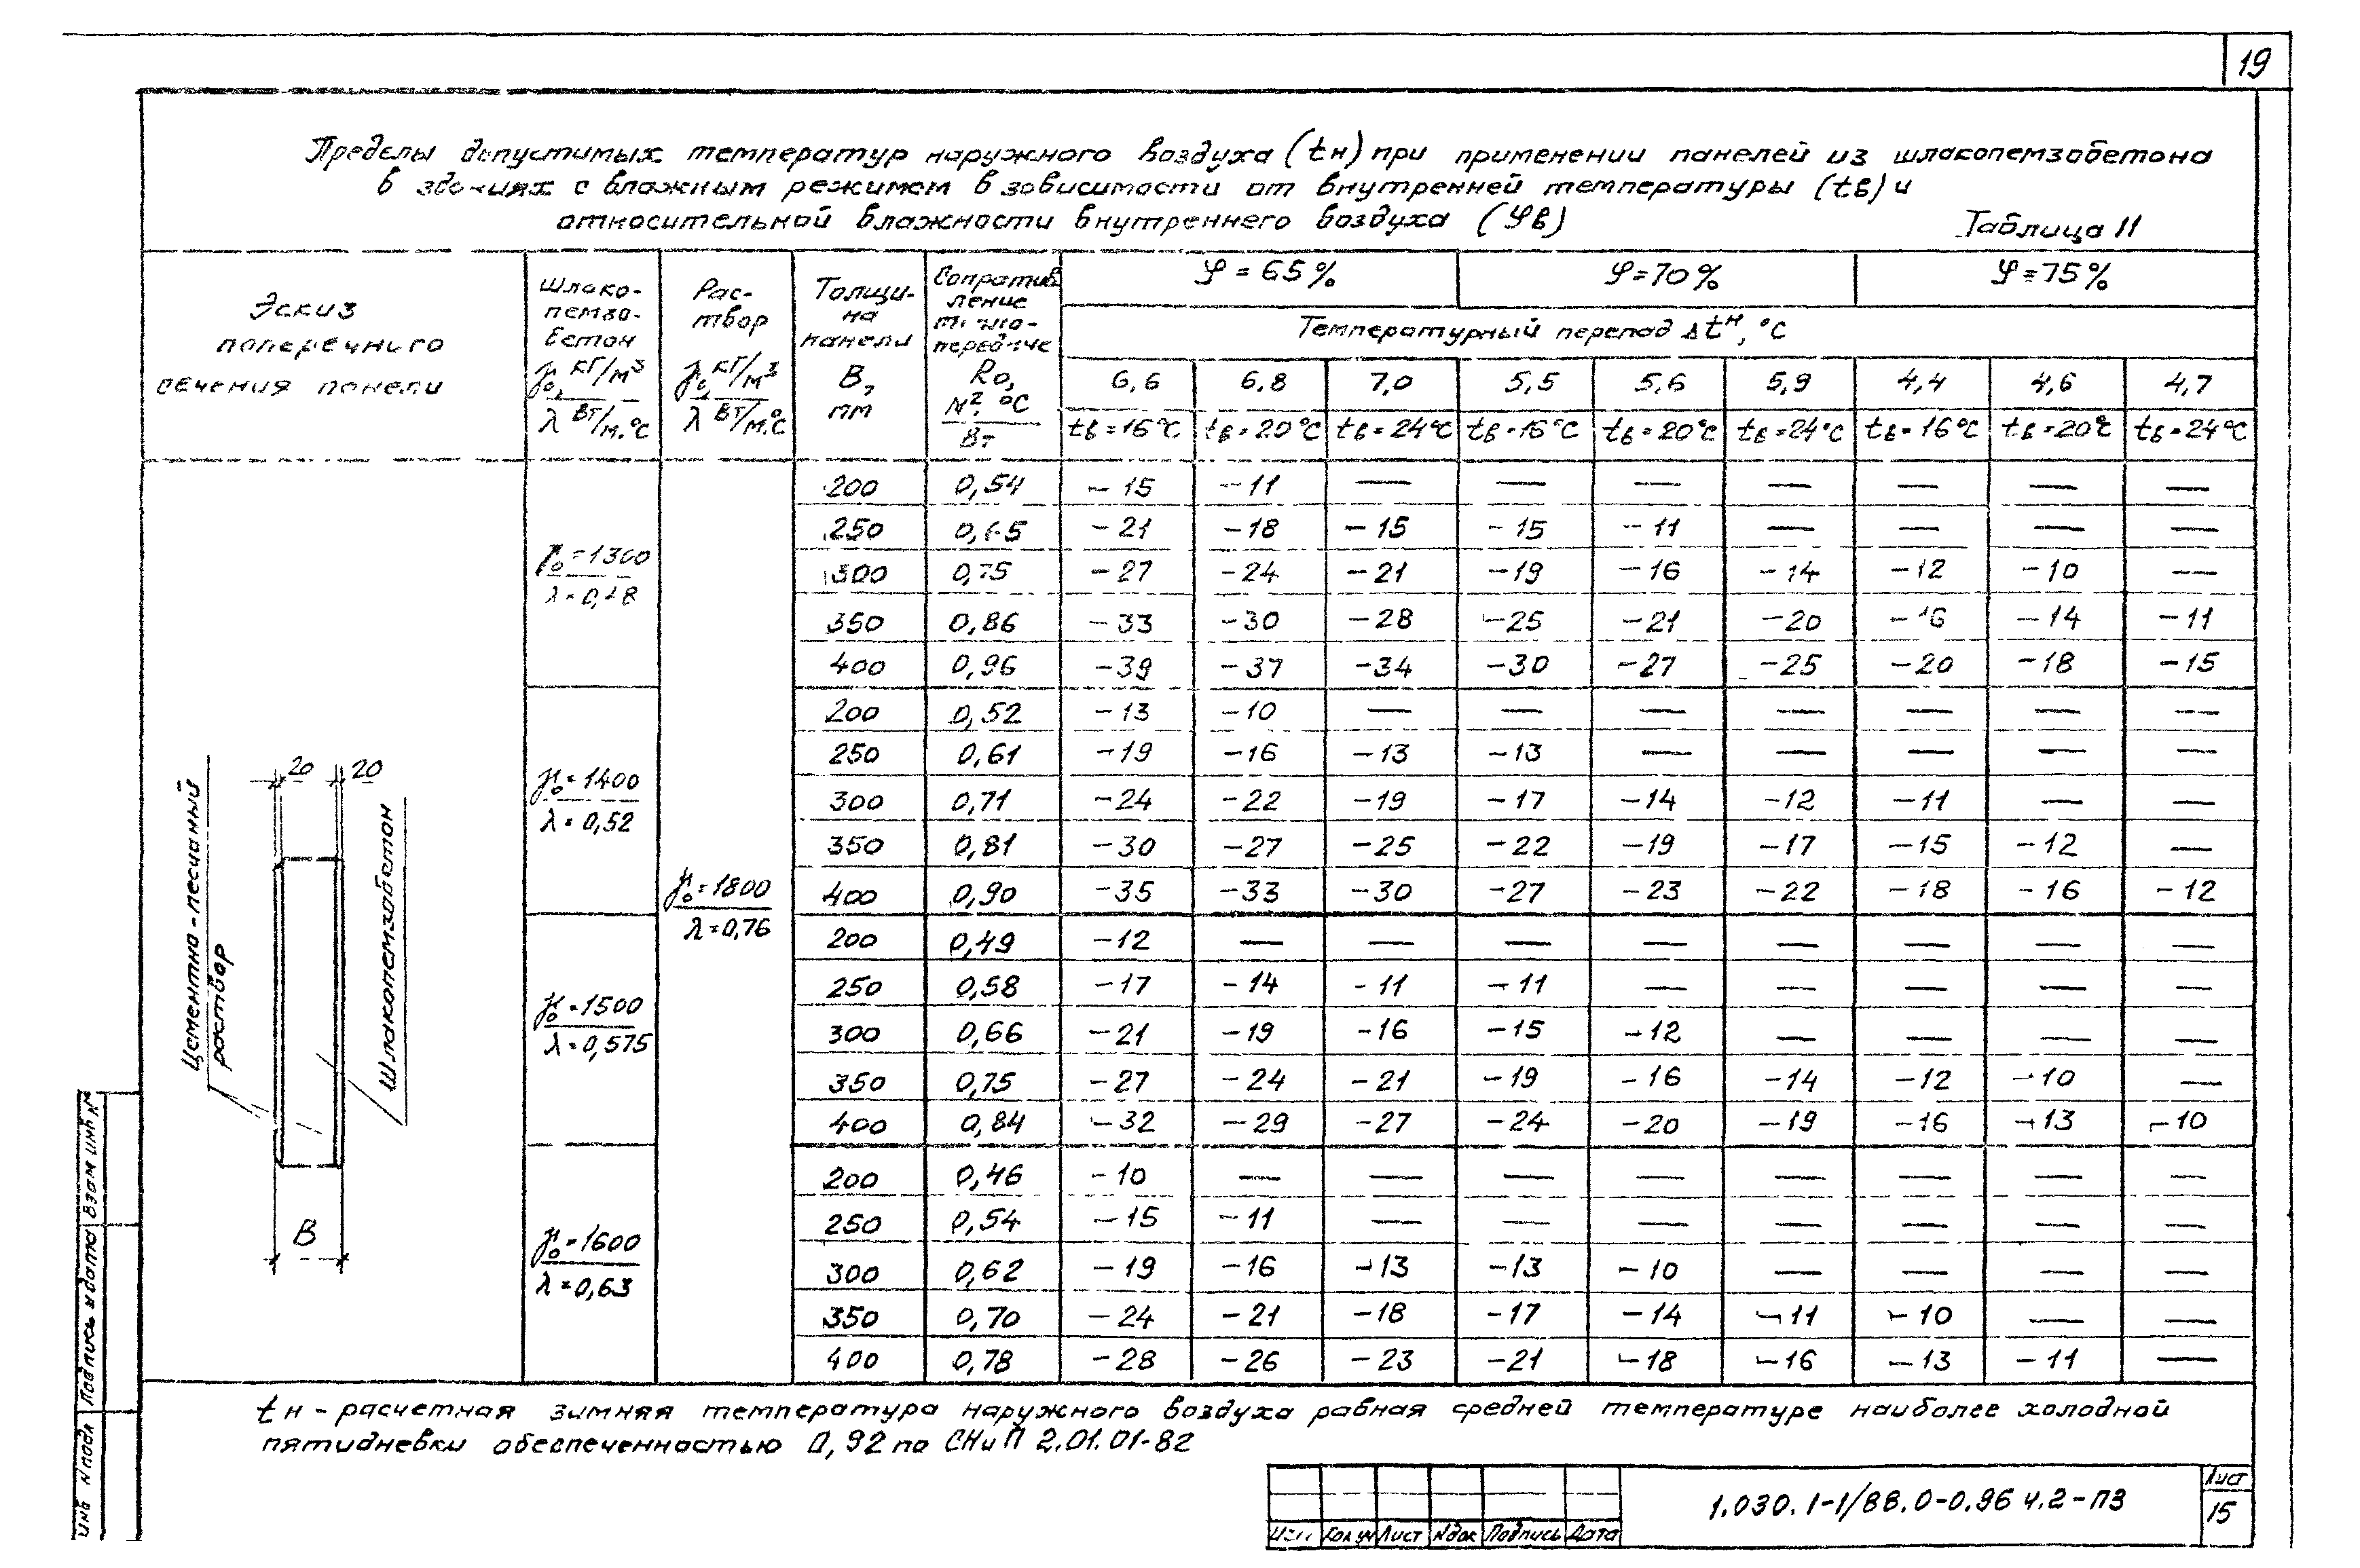 19
Пределы допустимых температур наружного воздуха (tн) при применении панелей из шлакопемзобетона
в зданиях с влажным режимом в зависимости от внутренней температуры (tв) и
относительной влажности внутреннего воздуха (φв)
Таблица 11
Эскиз поперечного сечения панели
Шлако-пемзо-бетон γ₀, кг/м³ / λ Вт/м.°С
Рас-твор γ₀, кг/м³ / λ Вт/м.°С
Толщи-на панели В, мм
Сопротив ление тепло-передаче Rо, м².°С / Вт
φ = 65% φ = 70% φ = 75%
Температурный перепад Δtᴴ, °С
6,6 6,8 7,0 5,5 5,6 5,9 4,4 4,6 4,7
tв = 16°С tв = 20°С tв = 24°С tв = 16°С tв = 20°С tв = 24°С tв = 16°С tв = 20°С tв = 24°С
γ₀ = 1300
200 0,54 -15 -11 — — — — — — —
250 0,65 -21 -18 -15 -15 -11 — — — —
300 0,75 -27 -24 -21 -19 -16 -14 -12 -10 —
350 0,86 -33 -30 -28 -25 -21 -20 -16 -14 -11
400 0,96 -39 -37 -34 -30 -27 -25 -20 -18 -15
γ₀ = 1400
λ = 0,52
200 0,52 -13 -10 — — — — — — —
250 0,61 -19 -16 -13 -13 — — — — —
300 0,71 -24 -22 -19 -17 -14 -12 -11 — —
350 0,81 -30 -27 -25 -22 -19 -17 -15 -12 —
400 0,90 -35 -33 -30 -27 -23 -22 -18 -16 -12
γ₀ = 1800
λ = 0,76
γ₀ = 1500
λ = 0,575
200 0,49 -12 — — — — — — — —
250 0,58 -17 -14 -11 -11 — — — — —
300 0,66 -21 -19 -16 -15 -12 — — — —
350 0,75 -27 -24 -21 -19 -16 -14 -12 -10 —
400 0,84 -32 -29 -27 -24 -20 -19 -16 -13 -10
γ₀ = 1600
λ = 0,63
200 0,46 -10 — — — — — — — —
250 0,54 -15 -11 — — — — — — —
300 0,62 -19 -16 -13 -13 -10 — — — —
350 0,70 -24 -21 -18 -17 -14 -11 -10 — —
400 0,78 -28 -26 -23 -21 -18 -16 -13 -11 —
20 20
Цементно-песчаный
раствор
Шлакопемзобетон
В
tн - расчетная зимняя температура наружного воздуха равная средней температуре наиболее холодной
пятидневки обеспеченностью 0,92 по СНиП 2.01.01-82
Взам инв №
Подпись и дата
Инв № подл
Изм. Кол.уч Лист Nдок Подпись Дата
1.030.1-1/88.0-0.96 ч.2-ПЗ
Лист
15